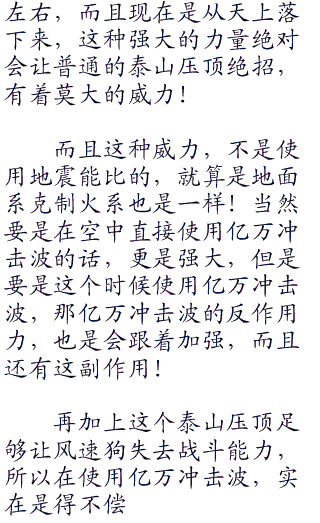 左右，而且现在是从天上落
下来，这种强大的力量绝对
会让普通的泰山压顶绝招，
有着莫大的威力！
而且这种威力，不是使
用地震能比的，就算是地面
系克制火系也是一样！当然
要是在空中直接使用亿万冲
击波的话，更是强大，但是
要是这个时候使用亿万冲击
波，那亿万冲击波的反作用
力，也是会跟着加强，而且
还有这副作用！
再加上这个泰山压顶足
够让风速狗失去战斗能力，
所以在使用亿万冲击波，实
在是得不偿